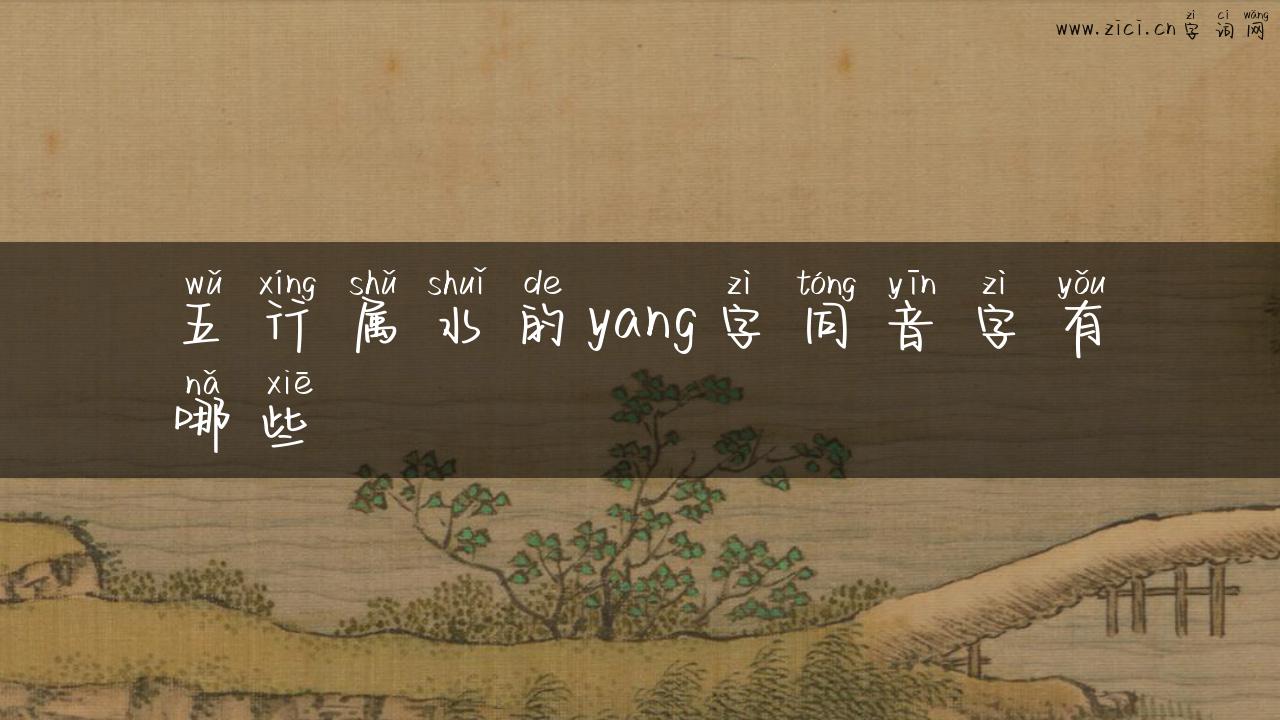 zì cí wǎng
www.zici.cn 字词网
wǔ xíng shǔ shuǐ de zì tóng yīn zì yǒu
五行属水的yang字同音字有
nǎ xiē
哪些